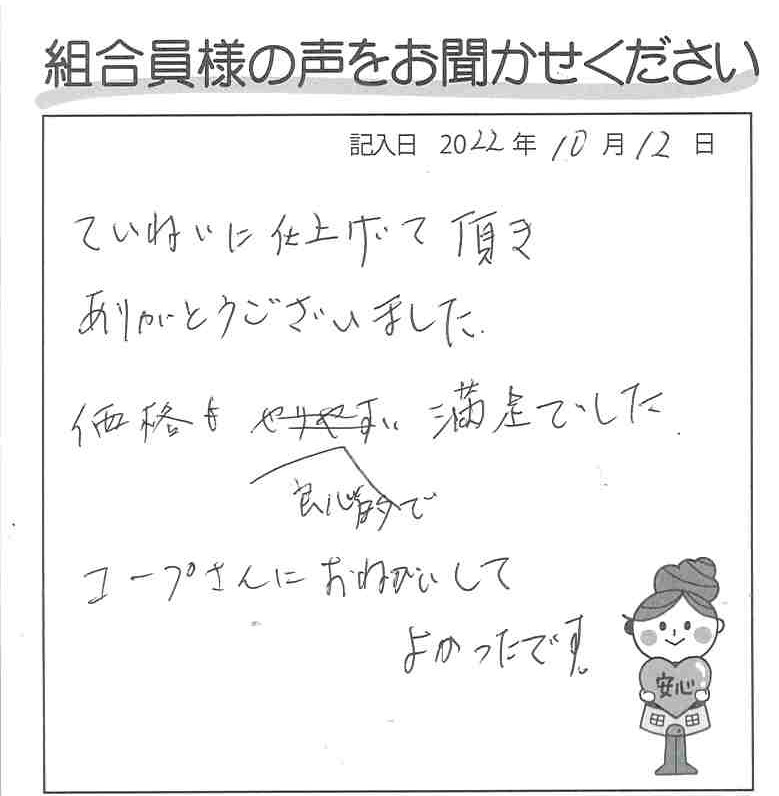 組合員様の声をお聞かせください
記入日 2022年 10月12日
ていねいに仕上げて頂き
ありがとうございました.
価格も 満足でした.
良心的で
コープさんにおねがいして
よかったです。
安心